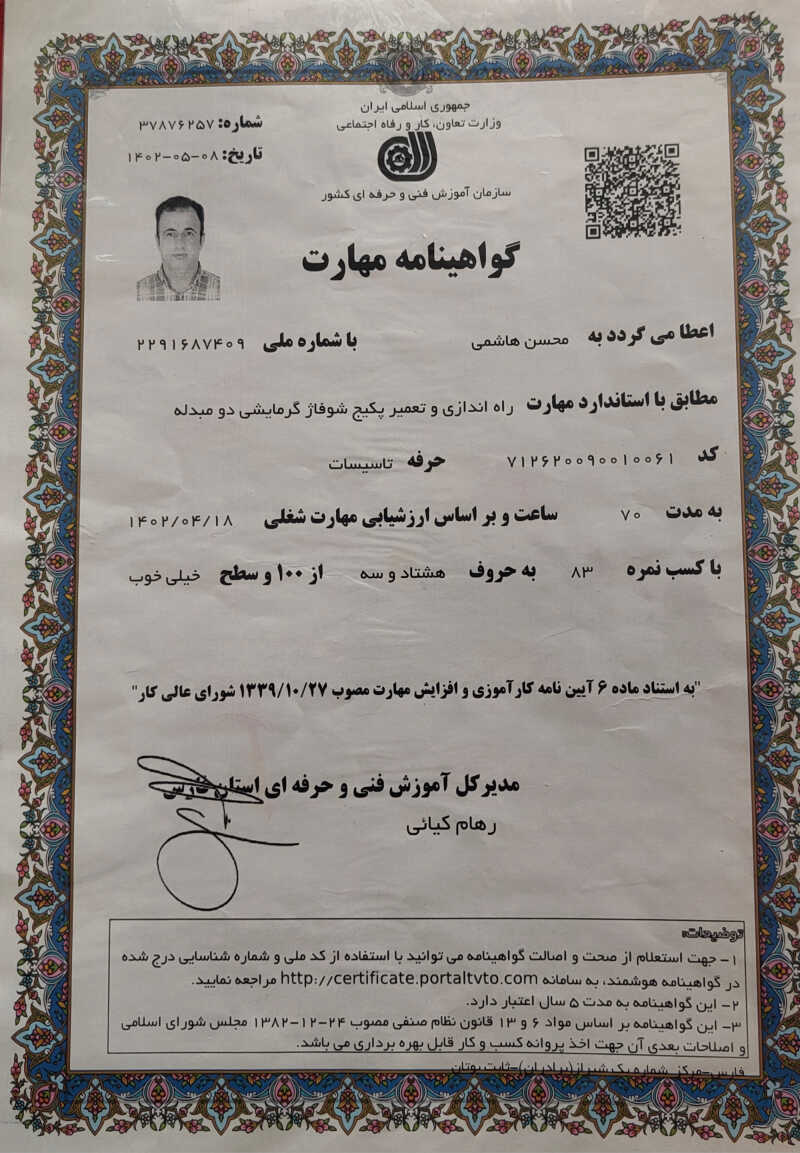 جمهوری اسلامی ایران
وزارت تعاون، کار و رفاه اجتماعی
سازمان آموزش فنی و حرفه ای کشور
شماره: ۳۷۸۷۶۲۵۷
تاریخ: ۱۴۰۲-۰۵-۰۸
گواهینامه مهارت
اعطا می گردد به محسن هاشمی با شماره ملی ۲۲۹۱۶۸۷۴۰۹
مطابق با استاندارد مهارت راه اندازی و تعمیر پکیج شوفاژ گرمایشی دو مبدله
کد ۷۱۲۶۲۰۰۹۰۰۱۰۰۶۱ حرفه تاسیسات
به مدت ۷۰ ساعت و بر اساس ارزشیابی مهارت شغلی ۱۴۰۲/۰۴/۱۸
با کسب نمره ۸۳ به حروف هشتاد و سه از ۱۰۰ و سطح خیلی خوب
"به استناد ماده ۶ آیین نامه کارآموزی و افزایش مهارت مصوب ۱۳۳۹/۱۰/۲۷ شورای عالی کار"
مدیرکل آموزش فنی و حرفه ای استان فارس
رهام کیائی
توضیحات:
۱- جهت استعلام از صحت و اصالت گواهینامه می توانید با استفاده از کد ملی و شماره شناسایی درج شده
در گواهینامه هوشمند، به سامانه http://certificate.portaltvto.com مراجعه نمایید.
۲- این گواهینامه به مدت ۵ سال اعتبار دارد.
۳- این گواهینامه بر اساس مواد ۶ و ۱۳ قانون نظام صنفی مصوب ۲۴-۱۲-۱۳۸۲ مجلس شورای اسلامی
و اصلاحات بعدی آن جهت اخذ پروانه کسب و کار قابل بهره برداری می باشد.
فارس-مرکز شماره یک شیراز(برادران)-ثابت بوتان